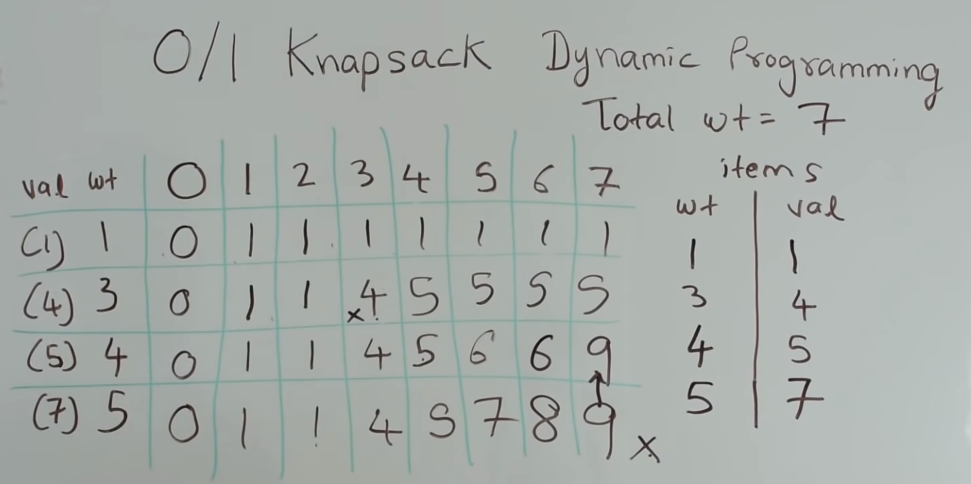 0/1 Knapsack Dynamic Programming
Total wt = 7
val wt 0 1 2 3 4 5 6 7
(1) 1 0 1 1 1 1 1 1 1
(4) 3 0 1 1 x4 5 5 5 5
(5) 4 0 1 1 4 5 6 6 9
(7) 5 0 1 1 4 5 7 8 9 x
items
wt val
1 1
3 4
4 5
5 7